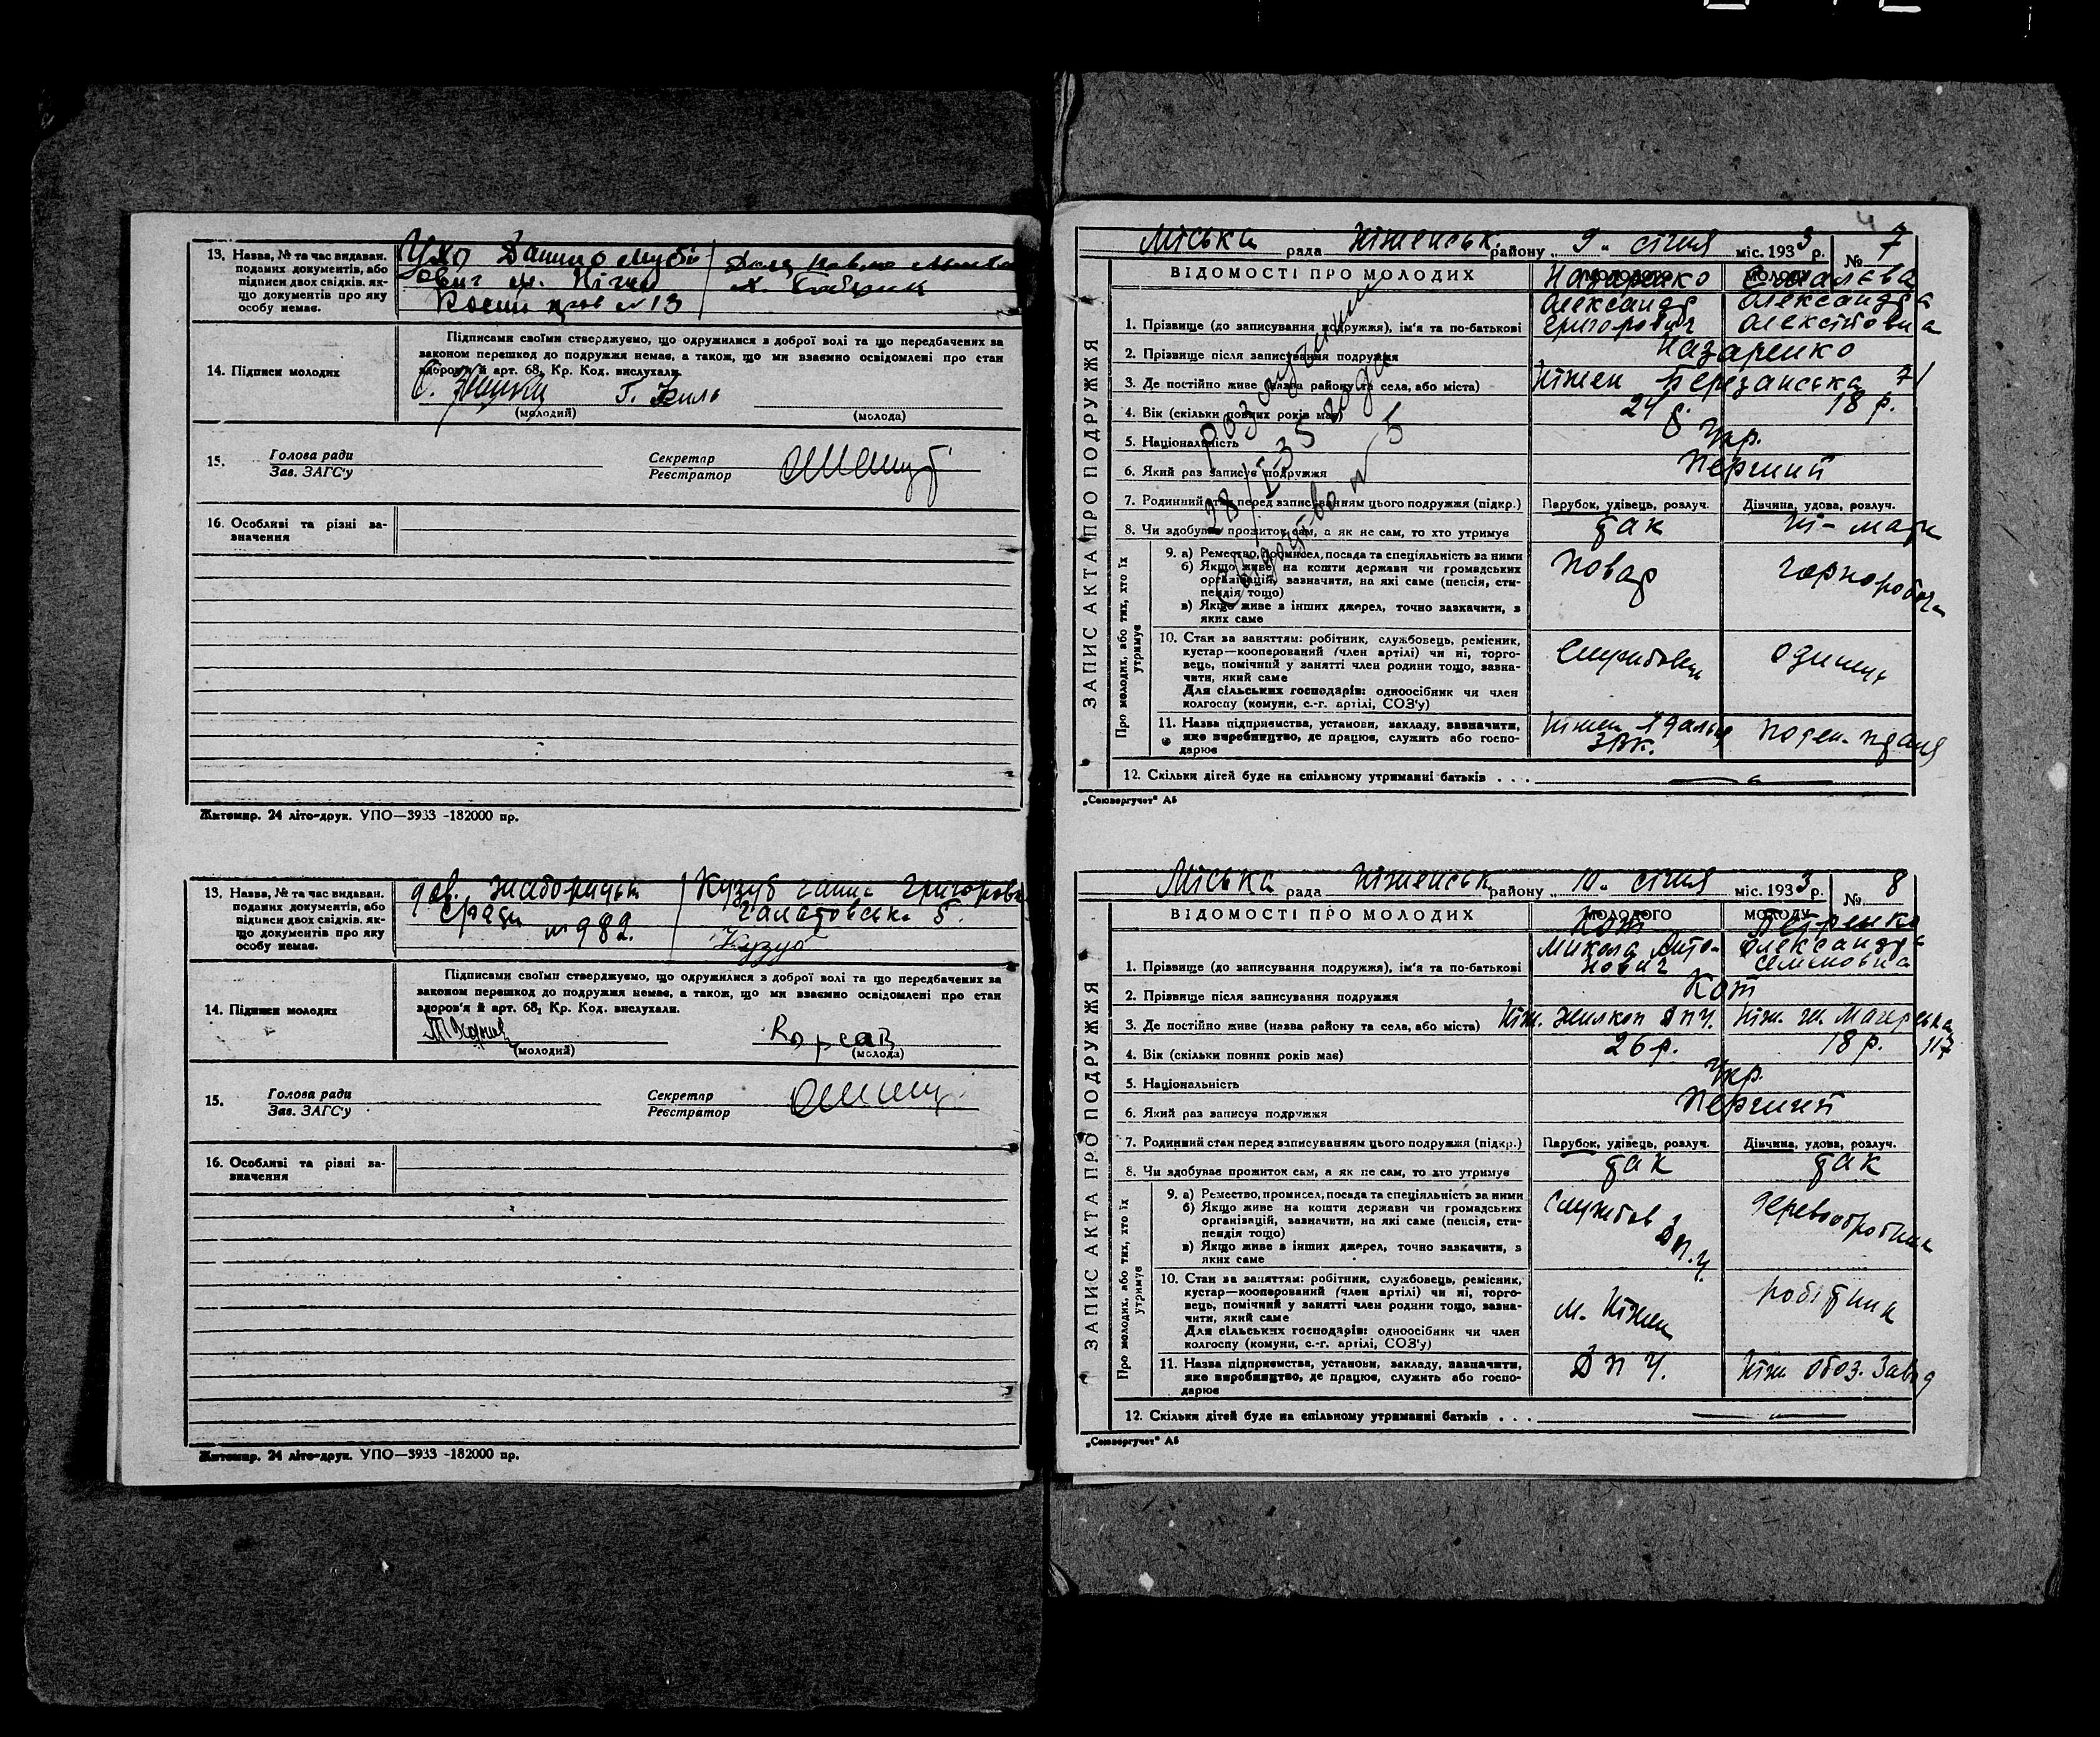 13. Назва, № та час видаван. поданих документів, або підписи двох свідків. якщо документів про яку особу немає.
Данило
м. Ніжин
№ 13
14. Підписи молодих
Підписами своїми стверджуємо, що одружилися з доброї волі та що передбачених за
законом перешкод до подружжя немає, а також, що ми взаємно освідомлені про стан
здоров'я й арт. 68, Кр. Код. вислухали.
(молодий)
(молода)
15.
Голова ради
Зав. ЗАГС'у
Секретар
Реєстратор
16. Особливі та різні зазначення
Житомир. 24 літо-друк. УПО—3933 -182000 пр.
13. Назва, № та час видаван. поданих документів, або підписи двох свідків. якщо документів про яку особу немає.
№ 982.
Кузуб Ганна Григоровн
14. Підписи молодих
Підписами своїми стверджуємо, що одружилися з доброї волі та що передбачених за
законом перешкод до подружжя немає, а також, що ми взаємно освідомлені про стан
здоров'я й арт. 68, Кр. Код. вислухали.
(молодий)
(молода)
15.
Голова ради
Зав. ЗАГС'у
Секретар
Реєстратор
16. Особливі та різні зазначення
Житомир. 24 літо-друк. УПО—3933 -182000 пр.
Міська рада Ніженськ. району „ 9 „ січня міс. 1933 р. № 7
ЗАПИС АКТА ПРО ПОДРУЖЖЯ
ВІДОМОСТІ ПРО МОЛОДИХ
Назаренко
Олександр
Олександра
1. Прізвище (до записування подружжя), ім'я та по-батькові
Григорович
Олексіївна
2. Прізвище після записування подружжя
Назаренко
3. Де постійно живе (назва району та села, або міста)
Ніжен Березанська 71
4. Вік (скільки повних років має)
24 р.
18 р.
5. Національність
Укр.
6. Який раз записує подружжя
Перший
7. Родинний стан перед записуванням цього подружжя (підкр.)
Парубок, удівець, розлуч.
Дівчина, удова, розлуч.
8. Чи здобуває прожиток сам, а як не сам, то хто утримує
так
ні - мати
Про молодих, або тих, хто їх утримує
9. а) Ремество, промисел, посада та спеціяльність за ними
б) Якщо живе на кошти держави чи громадських
організацій, зазначити, на які саме (пенсія, стипендія тощо)
в) Якщо живе з інших джерел, точно зазначити, з
яких саме
Повар
чорноробоча
10. Стан за заняттям: робітник, службовець, ремісник,
кустар—кооперований (член артілі) чи ні, торговець, помічний у занятті член родини тощо, зазначити, який саме
Для сільських господарів: одноосібник чи член
колгоспу (комуни, с.-г. артілі, СОЗ'у)
Службовець
11. Назва підприємства, установи, закладу, зазначити,
яке виробництво, де працює, служить або господарює
Ніжен Їдальня
ЗРК.
поден. праця
12. Скільки дітей буде на спільному утриманні батьків . . .
28/I-35 года
№ 5
„Союзоргучет" А5
Міська рада Ніженськ району „ 10 „ січня міс. 1933 р. № 8
ЗАПИС АКТА ПРО ПОДРУЖЖЯ
ВІДОМОСТІ ПРО МОЛОДИХ
МОЛОДОГО
МОЛОДУ
Кот
Петренко
Микола Анто-
Олександра
1. Прізвище (до записування подружжя), ім'я та по-батькові
нович
Семеновна
2. Прізвище після записування подружжя
Кот
3. Де постійно живе (назва району та села, або міста)
Ніж. Жилкоп ДПУ.
117
4. Вік (скільки повних років має)
26 р.
18 р.
5. Національність
Укр.
6. Який раз записує подружжя
Перший
7. Родинний стан перед записуванням цього подружжя (підкр.)
Парубок, удівець, розлуч.
Дівчина, удова, розлуч.
8. Чи здобуває прожиток сам, а як не сам, то хто утримує
так
так
Про молодих, або тих, хто їх утримує
9. а) Ремество, промисел, посада та спеціяльність за ними
б) Якщо живе на кошти держави чи громадських
організацій, зазначити, на які саме (пенсія, стипендія тощо)
в) Якщо живе з інших джерел, точно зазначити, з
яких саме
Службов ДПУ.
деревообробник
10. Стан за заняттям: робітник, службовець, ремісник,
кустар—кооперований (член артілі) чи ні, торговець, помічний у занятті член родини тощо, зазначити, який саме
Для сільських господарів: одноосібник чи член
колгоспу (комуни, с.-г. артілі, СОЗ'у)
м. Ніжен
робітник
11. Назва підприємства, установи, закладу, зазначити,
яке виробництво, де працює, служить або господарює
ДПУ.
Ніж. Обоз. Завод
12. Скільки дітей буде на спільному утриманні батьків . . .
„Союзоргучет" А5